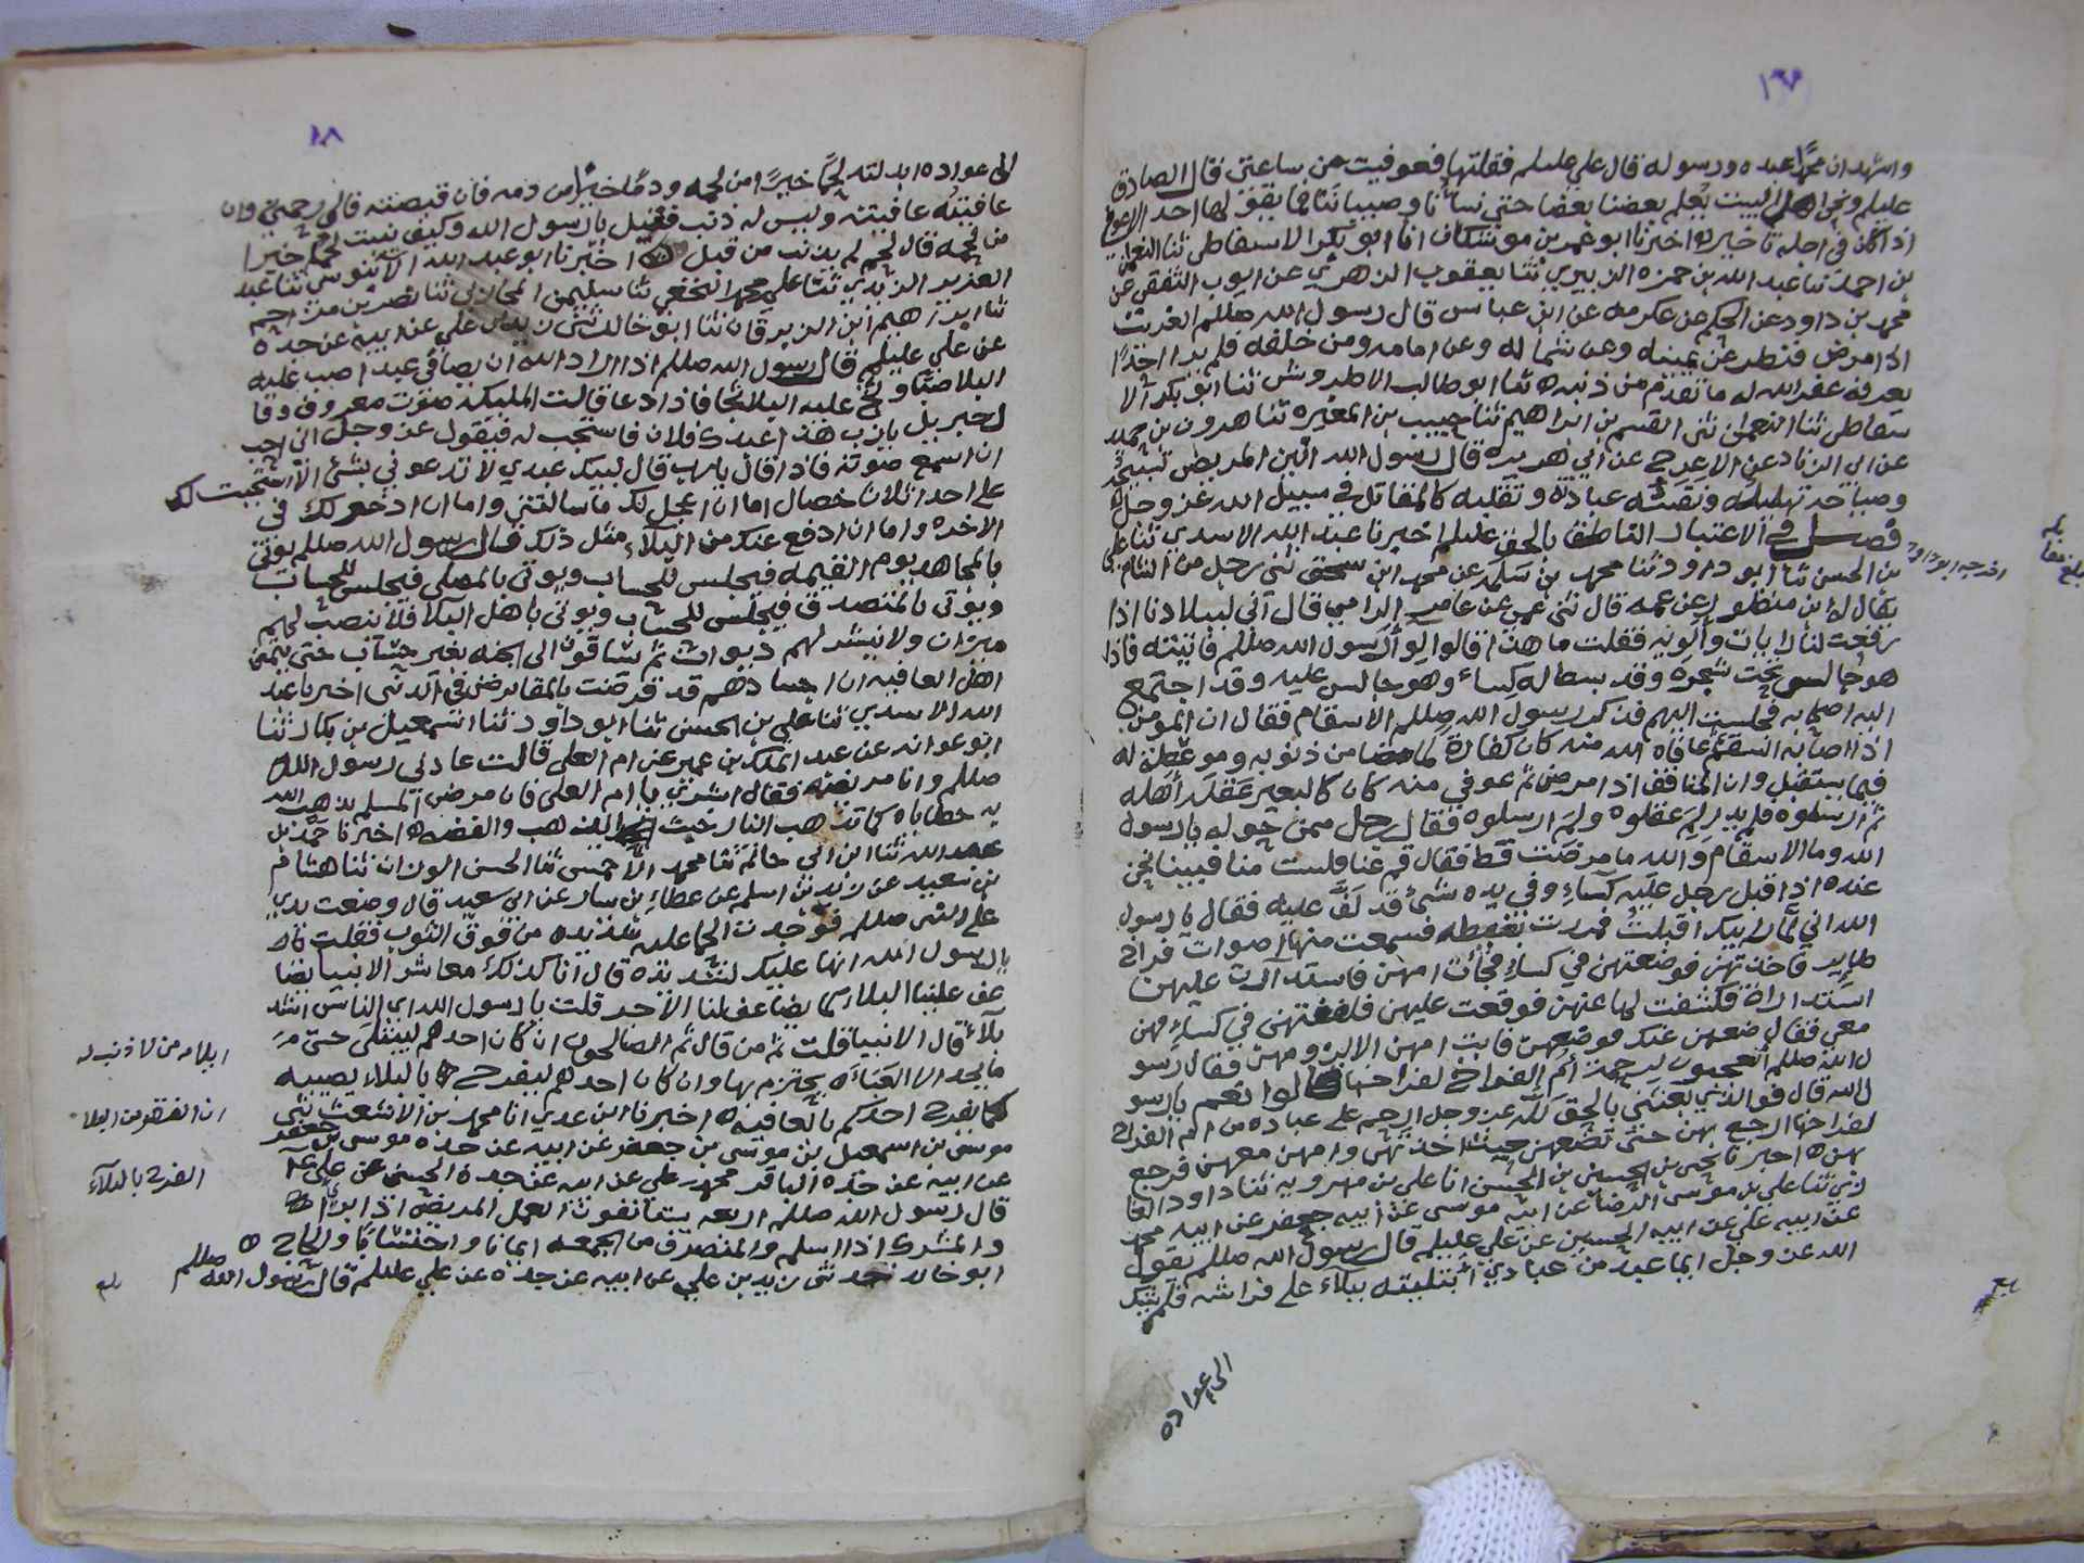 واشهد ان محمدا عبده ورسوله قال علي عليلم فقلتها فعوفيت من ساعتي قال الصادق
عليلم ونحن اهل البيت يعلم بعضنا بعضا حتى نسانا وصبياننا فما يقولها احد الا عوفي
اذا كان في اجله تاخير ه اخبرنا ابو عمر بن موشكان انا ابو بكر الاسفاطي ثنا النعمان
بن احمد ثنا عبد الله بن حمزه الزبيري ثنا يعقوب الزهري عن ايوب الثقفي عن
محمد بن داود عن الحكم عن عكرمه عن ابن عباس قال رسول الله صللم الغريب
اذا مرض فنظر عن يمينه وعن شماله وعن امامه ومن خلفه فلم ير احدًا
يعرفه غفر الله له ما تقدم من ذنبه ه ثنا ابو طالب الاطروش ثنا ابو بكر الا
سفاطي ثنا النعمان ثنى القسم بن ابراهيم ثنا حبيب بن المغيره ثنا هرون بن حميد
عن ابى الزناد عن الاعرج عن ابي هريره قال رسول الله انين المريض تسبيح
وصياحه تهليله ونفسه عبادة وتقلبه كالمقاتل في سبيل الله عز وجل
فصل في الاعتبار الناطق بالحق عليلم اخبرنا عبد الله الاسدي ثنا علي
بن الحسن ثنا ابو داود ثنا محمد بن سلمه عن محمد ابن اسحق ثنى رجل من الشام
يقال له ابن منظور عن عمه قال ثنى عمي عن عامر الرامي قال اني لببلادنا اذا
رفعت لنا رايات والويه فقلت ما هذا قالوا لوا رسول الله صللم فاتيته فاذا
هو جالس تحت شجره وقد بسط له كساء وهو جالس عليه وقد اجتمع
اليه اصحابه فجلست اليهم فذكر رسول الله صللم الاسقام فقال ان المومن
اذا اصابه السقم ثم عافاه الله منه كان كفارة لما مضا من ذنوبه وموعظة له
فيما يستقبل وان المنافق اذا مرض ثم عوفي منه كان كالبعير عقله اهله
ثم ارسلوه فلم يدر لم عقلوه ولم ارسلوه فقال رجل ممن حوله يارسول
الله وما الاسقام والله ما مرضت قط فقال قم عنا فلست منا فبينا نحن
عنده اذا قبل رجل عليه كساء وفي يده شئ قد لف عليه فقال يا رسول
الله اني لما رايتك اقبلت فمررت بغيضه فسمعت منها اصوات فراخ
طاير فاخذتهن فوضعتهن في كساي فجات امهن فاستدارت على
استدارة فكشفت لها عنهن فوقعت عليهن فلففتهن في كساي فهن
معي فقال ضعهن عنك فوضعهن فابت امهن الا لزومهن فقال رسو
ل الله صللم اتعجبون لرحمة ام الفراخ لفراخها قالوا نعم يارسو
ل الله قال فوالذي بعثني بالحق لله عز وجل ارحم على عباده من ام الفراخ
لفراخها ارجع بهن حتى تضعهن حيث اخذتهن وامهن معهن فرجع
بهن ه اخبرنا يحيى بن الحسين بن الحسن انا علي بن مهرويه ثنا داود الغا
زي ثنا علي بن موسى الرضا عن ابيه موسى عن ابيه جعفر عن ابيه محمد
عن ابيه علي عن ابيه الحسين عن علي عليلم قال رسول الله صللم يقول
الله عز وجل ايما عبد من عبادي ابتليته ببلاء على فراشه فلم يشك
الى عواده
اخرجه ابو داود
١٨
الى عواده ابدلته لحمًا خيرًا من لحمه ودمًا خيرًا من دمه فان قبضته فالى رحمتي وان
عافيته عافيته وليس له ذنب فقيل يا رسول الله وكيف نبت لحم خيرا
من لحمه قال لحم لم يذنب من قبل ه اخبرنا ابو عبد الله الانوسي ثنا عبد
العزيز الزيدي ثنا علي محمد النخعي ثنا سليمن المحاربي ثنا نصر بن مزاحم
ثنا ابرهيم ابن الزبرقان ثنا ابو خالد ثنى زيد بن علي عن ابيه عن جده
عن علي عليلم قال رسول الله صللم اذا اراد الله ان يصافي عبد اصب عليه
البلا صبًّا وثج عليه البلا ثجا فاذا دعا قالت المليكه صوت معروف وقا
ل جبريل يا رب هذا عبدك فلان فاستجب له فيقول عز وجل اني احب
ان اسمع صوته فاذا قال يارب قال لبيك عبدي لا تدعوني بشئ الا استجبت لك
على احد ثلاث خصال اما ان اعجل لك ما سالتني واما ان ادخر لك في
الاخره واما ان ادفع عنك من البلاء مثل ذلك قال رسول الله صللم يوتى
بالمجاهد يوم القيمه فيجلس للحساب ويوتى بالمصلي فيجلس للحساب
ويوتى بالمتصدق فيجلس للحساب ويوتى باهل البلا فلا ينصب لهم
ميزان ولا ينشر لهم ديوان ثم يساقون الى الجنه بغير حساب حتى يتمنى
اهل العافيه ان اجسادهم قد قرضت بالمقاريض في الدنيى اخبرنا عبد
الله الاسدي ثنا علي بن الحسن ثنا ابو داود ثنا اسمعيل بن بكار ثنا
ابو عوانه عن عبد الملك بن عمير عن ام العلى قالت عادني رسول الله
صللم وانا مريضه فقال ابشري يا ام العلى فان مرض المسلم يذهب الله
به خطاياه كما تذهب النار خبث الذهب والفضه ه اخبرنا حمد بن
عبدالله ثنا ابن ابي حاتم ثنا محمد الاحمسي ثنا الحسن الوزان ثنا هشام
بن سعيد عن زيد بن اسلم عن عطاء بن يسار عن ابي سعيد قال وضعت يدي
على النبى صللم فوجدت الحما عليه شديده من فوق الثوب فقلت
يارسول الله انها عليك لشديده قال انا كذلك معاشر الانبيا يضا
عف علينا البلاء كما يضاعف لنا الاجر قلت يا رسول الله اي الناس اشد
بلاء قال الانبيا قلت ثم من قال ثم الصالحون ان كان احدهم ليبتلى حتى
ما يجد الا العباءه يحتزم بها وان كان احدهم ليفرح بالبلاء يصيبه
كما يفرح احدكم بالعافيه ه اخبرنا ابن عدي انا محمد بن الاشعث ثنى
موسى بن اسمعيل بن موسى بن جعفر عن ابيه عن جده موسى بن جعفر
عن ابيه عن جده الباقر محمد بن علي عن ابيه عن جده الحسين عن علي
قال رسول الله صللم اربعه يستانفون العمل المريض اذا ابرأ
والمشرك اذا اسلم والمنصرف من الجمعه ايمانا واحتسابا والحاج ه
ابو خالد ثنى زيد بن علي عن ابيه عن جده عن علي عليلم قال رسول الله صللم
ابلاه من لا ذنب له
ان الفقر من البلا
الفرح بالبلاء